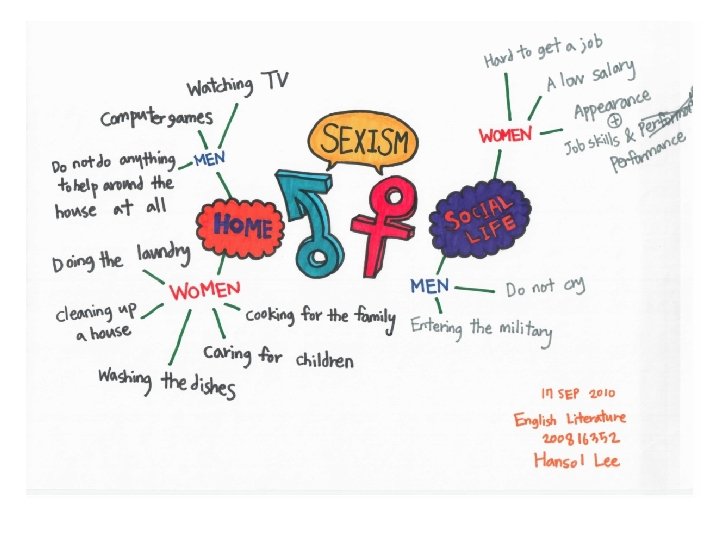 SEXISM
HOME
MEN
Watching TV
Computer games
Do not do anything
to help around the
house at all
WOMEN
Doing the laundry
Cleaning up
a house
Washing the dishes
Caring for children
Cooking for the family
SOCIAL
LIFE
WOMEN
Hard to get a job
A low salary
Appearance
⊕
Job skills &
Performance
MEN
Do not cry
Entering the military
17 SEP 2010
English Literature
200816352
Hansol Lee